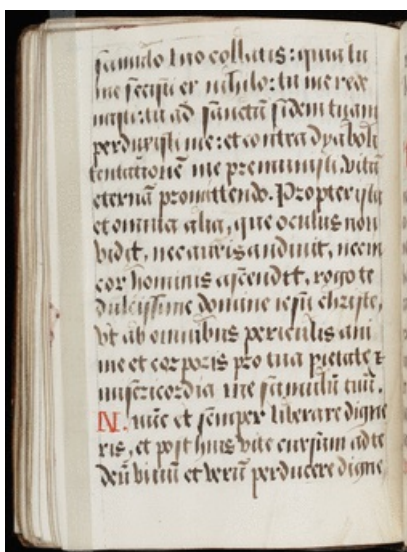 famulo tuo collatis: quia tu
me fecisti ex nihilo: tu me rede
misti: tu ad sanctã fidem tuam
perduxisti me: et contra dyaboli
tentationẽ me premunisti, vitã
eternã promittendo. Propter ista
et omnia alia, que oculus non
vidit, nec auris audivit, nec in
cor hominis ascendit, rogo te
dulcissime domine iesu christe,
vt ab omnibus periculis ani
me et corporis pro tua pietate &
misericordia me famulũ tuũ.
N. nunc et semper liberare digne
ris, et post huius vite cursum ad te
deũ vivũ et verũ perducere digne